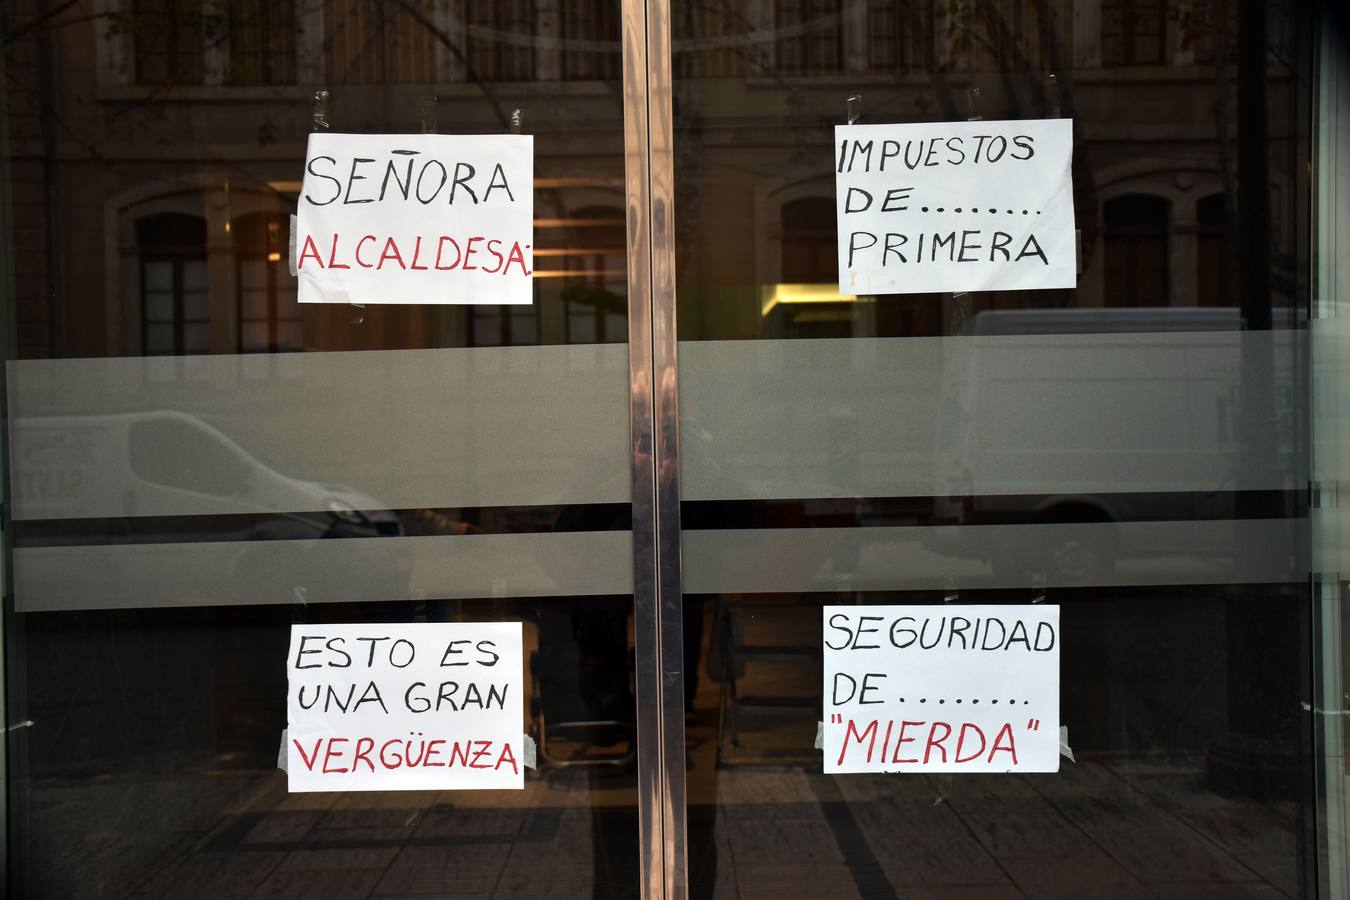 SEÑORA
ALCALDESA:
IMPUESTOS
DE........
PRIMERA
ESTO ES
UNA GRAN
VERGÜENZA
SEGURIDAD
DE........
"MIERDA"